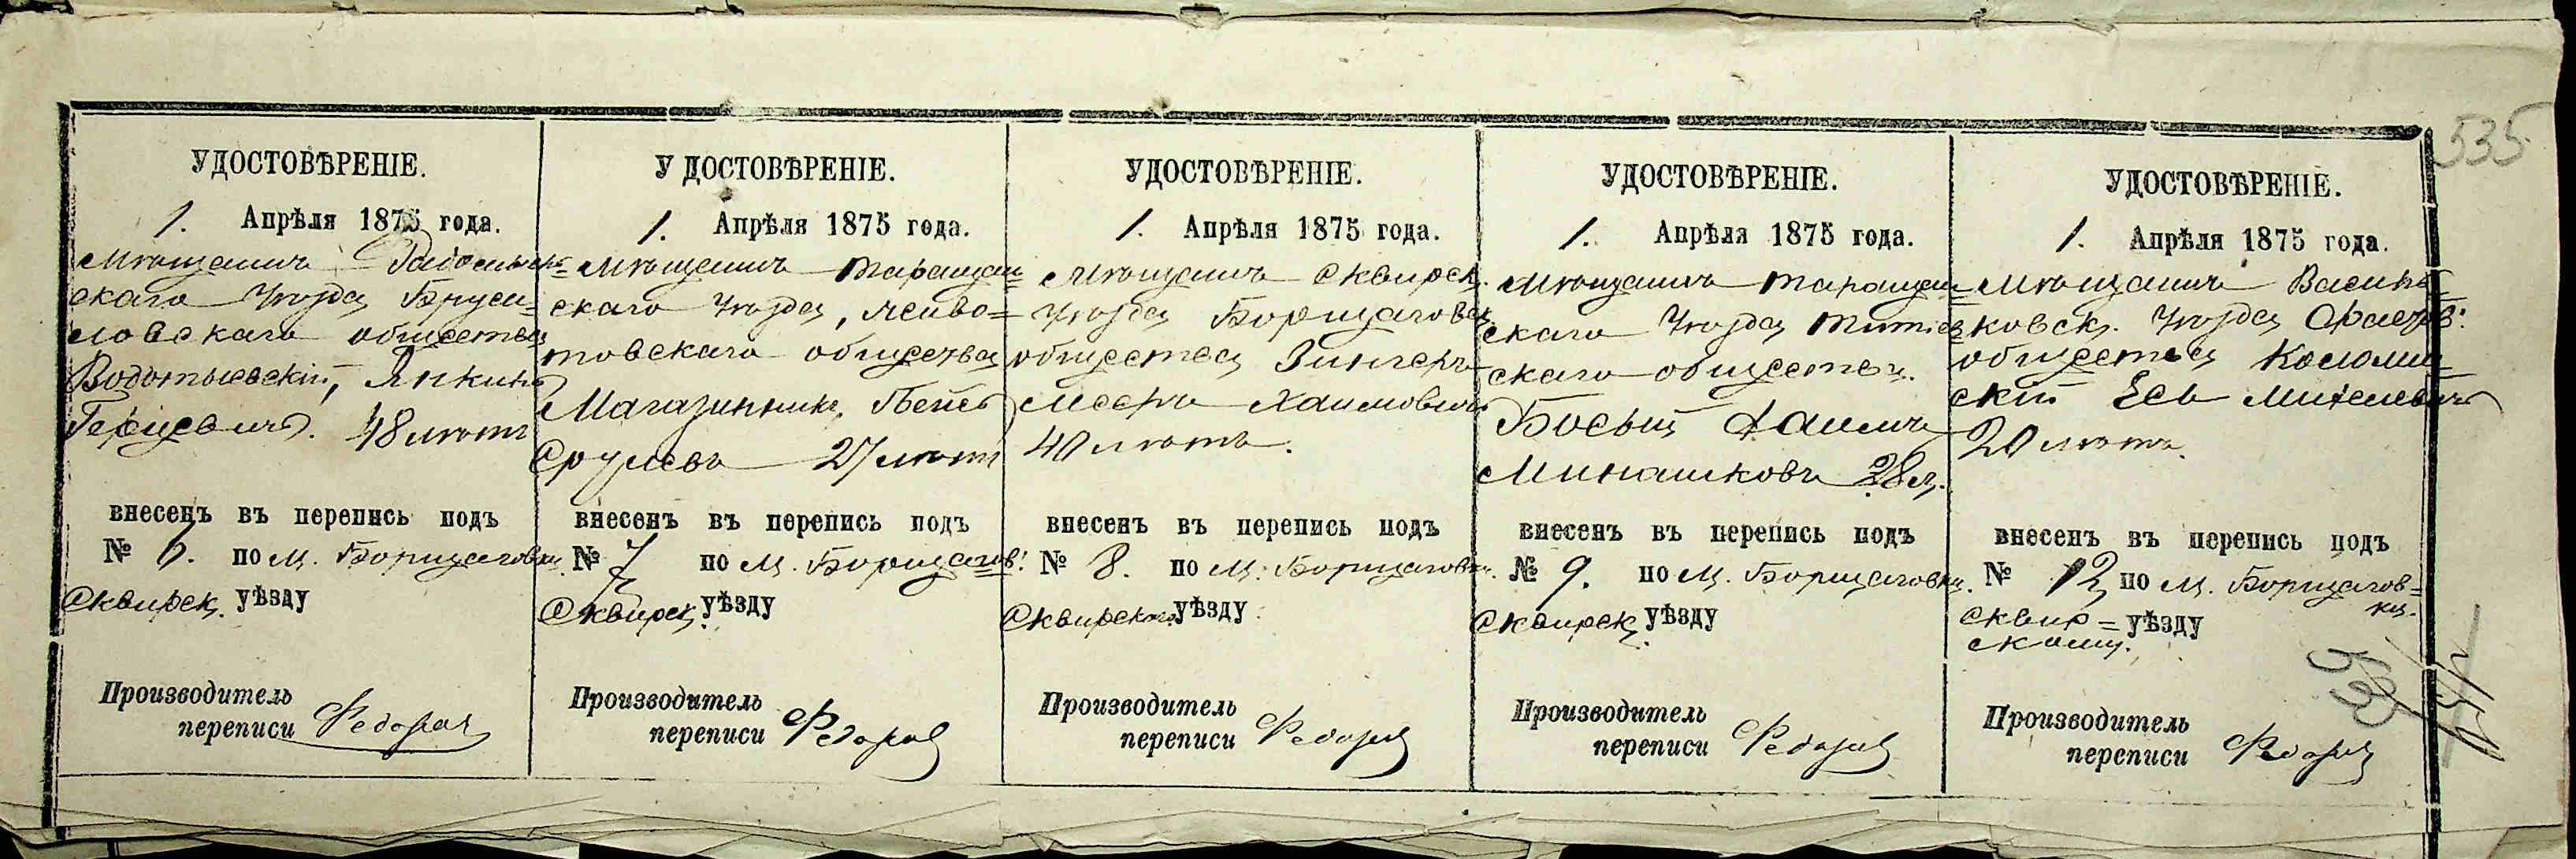 535
УДОСТОВѢРЕНІЕ.
1. Апрѣля 1875 года.
Мѣщанинъ Радомысль=
скаго Уѣзда Бруси=
ловскаго общества
Водотыевскій, Янкель
Герцевичъ. 48 лѣтъ
внесенъ въ перепись подъ
№ 6. по м. Борщаговкѣ.
Сквирск. уѣзду
Производитель
переписи Федоров
У ДОСТОВѢРЕНІЕ.
1. Апрѣля 1875 года.
Мѣщанинъ Таращан=
скаго Уѣзда, Живо=
товскаго общества
Магазинникъ, Бейсъ
Срулевъ 27 лѣтъ
внесенъ въ перепись подъ
№ 7 по м. Борщагов:
Сквирск. уѣзду
Производитель
переписи Федоров
УДОСТОВѢРЕНІЕ.
1. Апрѣля 1875 года.
Мѣщанинъ Сквирск.
Уѣзда Борщаговск.
общества Зингеръ
Мееръ Хаимовичъ
40 лѣтъ.
внесенъ въ перепись подъ
№ 8. по м. Борщаговкѣ.
Сквирскому уѣзду
Производитель
переписи Федоров
УДОСТОВѢРЕНІЕ.
1. Апрѣля 1875 года.
Мѣщанинъ Таращан=
скаго Уѣзда Тетіев=
скаго общества.
Хаимъ
Минашковъ 28 л.
внесенъ въ перепись подъ
№ 9. по м. Борщаговкѣ.
Сквирск. уѣзду
Производитель
переписи Федоров
УДОСТОВѢРЕНІЕ.
1. Апрѣля 1875 года.
Мѣщанинъ Василь=
ковск. Уѣзда Фастов:
общества Коломий=
скій Есь Михелевичъ
20 лѣтъ.
внесенъ въ перепись подъ
№ 12 по м. Борщагов=
кѣ.
Сквир= уѣзду
скому.
Производитель
переписи Федоров